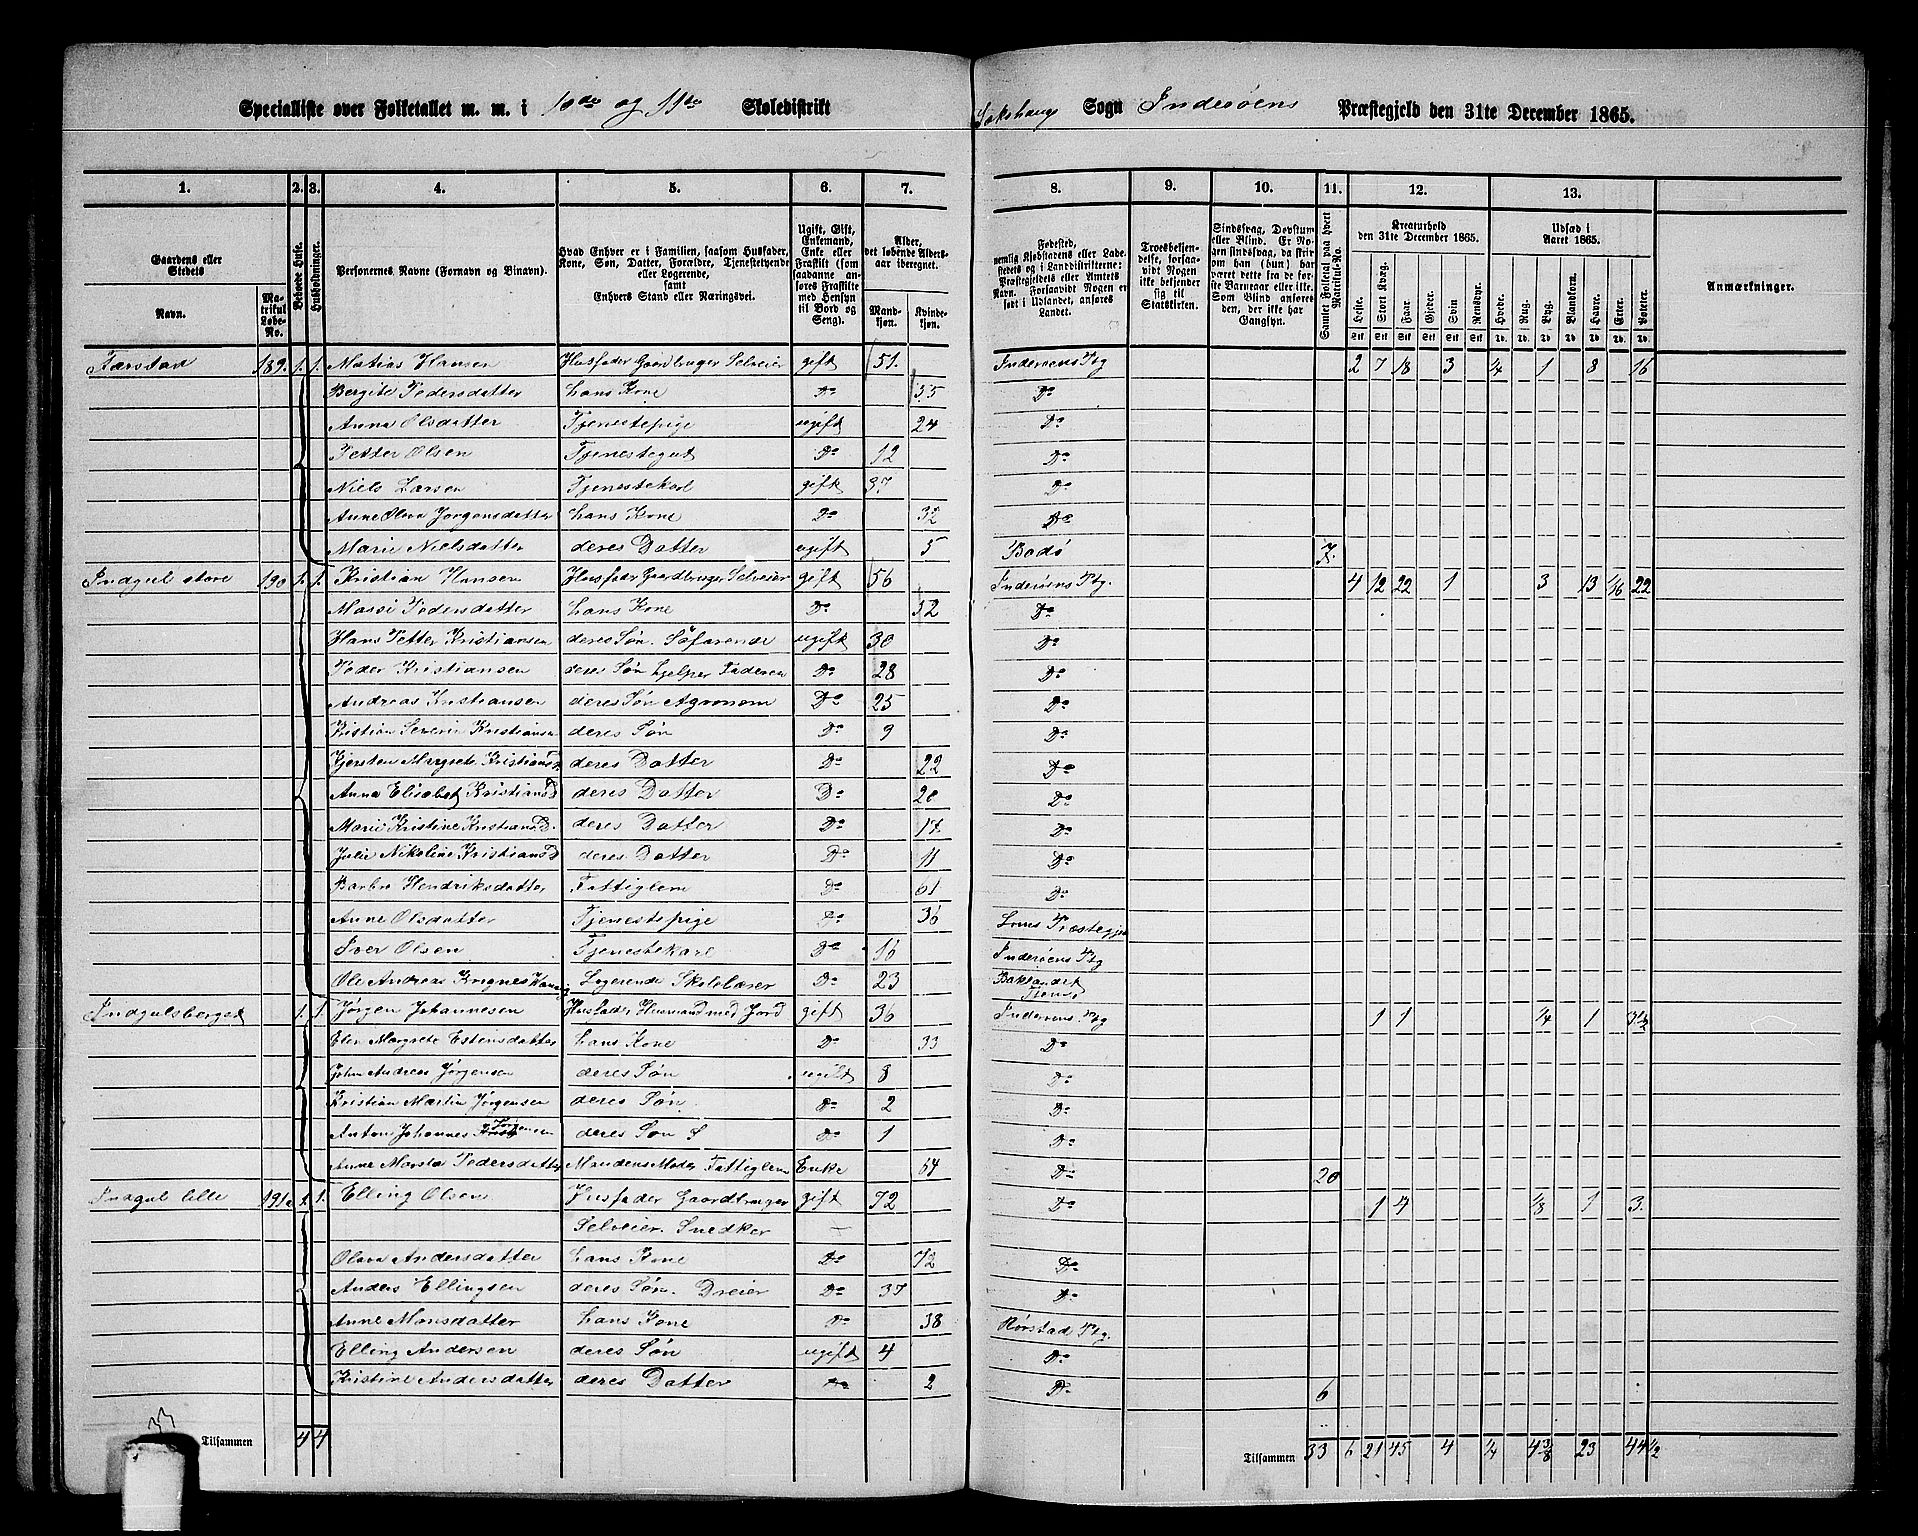 Specialliste over Folketallet m. m. i 10de og 11te Skoledistrikt Sakshaug Sogn Inderøens Præstegjeld den 31te December 1865.
1. 2. 3. 4. 5. 6. 7. 8. 9. 10. 11. 12. 13.
Gaardens eller Stedets
Navn.
Matrikul Løbe-No.
Beboede Huse.
Husholdninger.
Personernes Navne (Fornavn og Binavn).
Hvad Enhver er i Familien, saasom Husfader, Kone, Søn, Datter, Forældre, Tjenestetyende eller Logerende, samt Enhvers Stand eller Næringsvei.
Ugift, Gift, Enkemand, Enke eller Fraskilt (som saadanne anføres Fraskilte med Hensyn til Bord og Seng).
Alder, det løbende Alders-aar iberegnet.
Mandkjøn. Kvindekjøn.
Fødested, nemlig Kjøbstadens eller Ladestedets og i Landdistrikterne: Præstegjeldets eller Amtets Navn. Forsaavidt Nogen er født i Udlandet, anføres Landet.
Troesbekjendelse, forsaavidt Nogen ikke bekjender sig til Statskirken.
Sindssvag, Døvstum eller Blind. Er Nogen sindssvag, da skrives om han (hun) har været dette fra de første Barneaar eller ikke. Som Blind anføres den, der ikke har Gangsyn.
Samlet Folketal paa hvert Matrikul-No.
Kreaturhold den 31te December 1865.
Heste. Stort Kvæg. Faar. Gjeder. Svin. Rensdyr.
Udsæd i Aaret 1865.
Hvede. Rug. Byg. Blandkorn. Havre. Erter. Poteter.
Anmærkninger.
189. 1. 1. Matias Hansen Husfader Gaardbruger Selveier gift 51. Inderøens Ptg 2 7 18 3 1/4 1 8 16
Bergite Pedersdatter hans Kone Do 55 Do
Anna Olsdatter Tjenestepige ugift 24 Do
Petter Olsen Tjenestegut Do 12 Do
Niels Larsen Tjenestekarl gift 37. Do
Anne Olava Jørgensdatter hans Kone Do 32 Do
Marie Nielsdatter deres Datter ugift 5 Bodø 7.
Indgul store 190 1. 1. Kristian Hansen Husfader Gaardbruger Selveier gift 56 Inderøens Ptg. 4 12 22 1 3 13 1/16 22
Massi Pedersdatter hans Kone Do 52 Do
Hans Petter Kristiansen deres Søn. Søfarende ugift 30 Do
Peder Kristiansen deres Søn hjelper Faderen Do 28 Do
Andreas Kristiansen deres Søn Agronom Do 25 Do
Kristian Severin Kristiansen deres Søn Do 9 Do
Kjersten Margrete Kristiansd. deres Datter Do 22 Do
Anna Elisabet Kristiansd deres Datter Do 20 Do
Marie Kristine Kristiansd. deres Datter Do 17. Do
Julie Nikoline Kristiansd deres Datter Do 11 Do
Barbro Hendriksdatter Fattiglem Do 61 Do
Anne Olsdatter Tjenestepige Do 36 Præstegjeld
Iver Olsen Tjenestekarl Do 16 Inderøens Ptg
Ole Andreas Logerende Skolelærer Do 23 Baklandet
Indgulsberget 1. 1. Jørgen Johannesen Husfader Husmand med Jord gift 36 Inderøens Ptg 1 1 1/4 1 3 1/2
Elen Margrete Estensdatter hans Kone Do 33 Do
John Andreas Jørgensen deres Søn ugift 8 Do
Kristian Martin Jørgensen deres Søn Do 2 Do
Anton Johannes Jørgensen deres Søn Do 1 Do
Anne Marta Pedersdatter Mandens Moder Fattiglem Enke 64 Do 20
Indgul lille 191a 1. 1. Elling Olsen Husfader Gaardbruger gift 72 Do 1 4 1/8 1 3.
Selveier. Snedker
Olava Andersdatter hans Kone Do 72 Do
Anders Ellingsen deres Søn. Dreier Do 37 Do
Anne Monsdatter hans Kone Do 38 Rørstad Ptg.
Elling Andersen deres Søn ugift 4 Do
Kristine Andersdatter deres Datter Do 2 Do 6
33 Tilsammen 4 4 Tilsammen 33 6 21 45 4 1/4 4 3/8 23 44 1/2